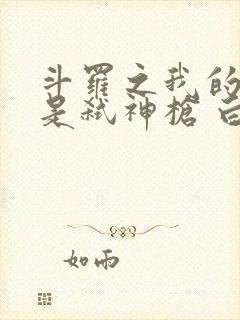 斗羅之我的
是弒神槍
如雨